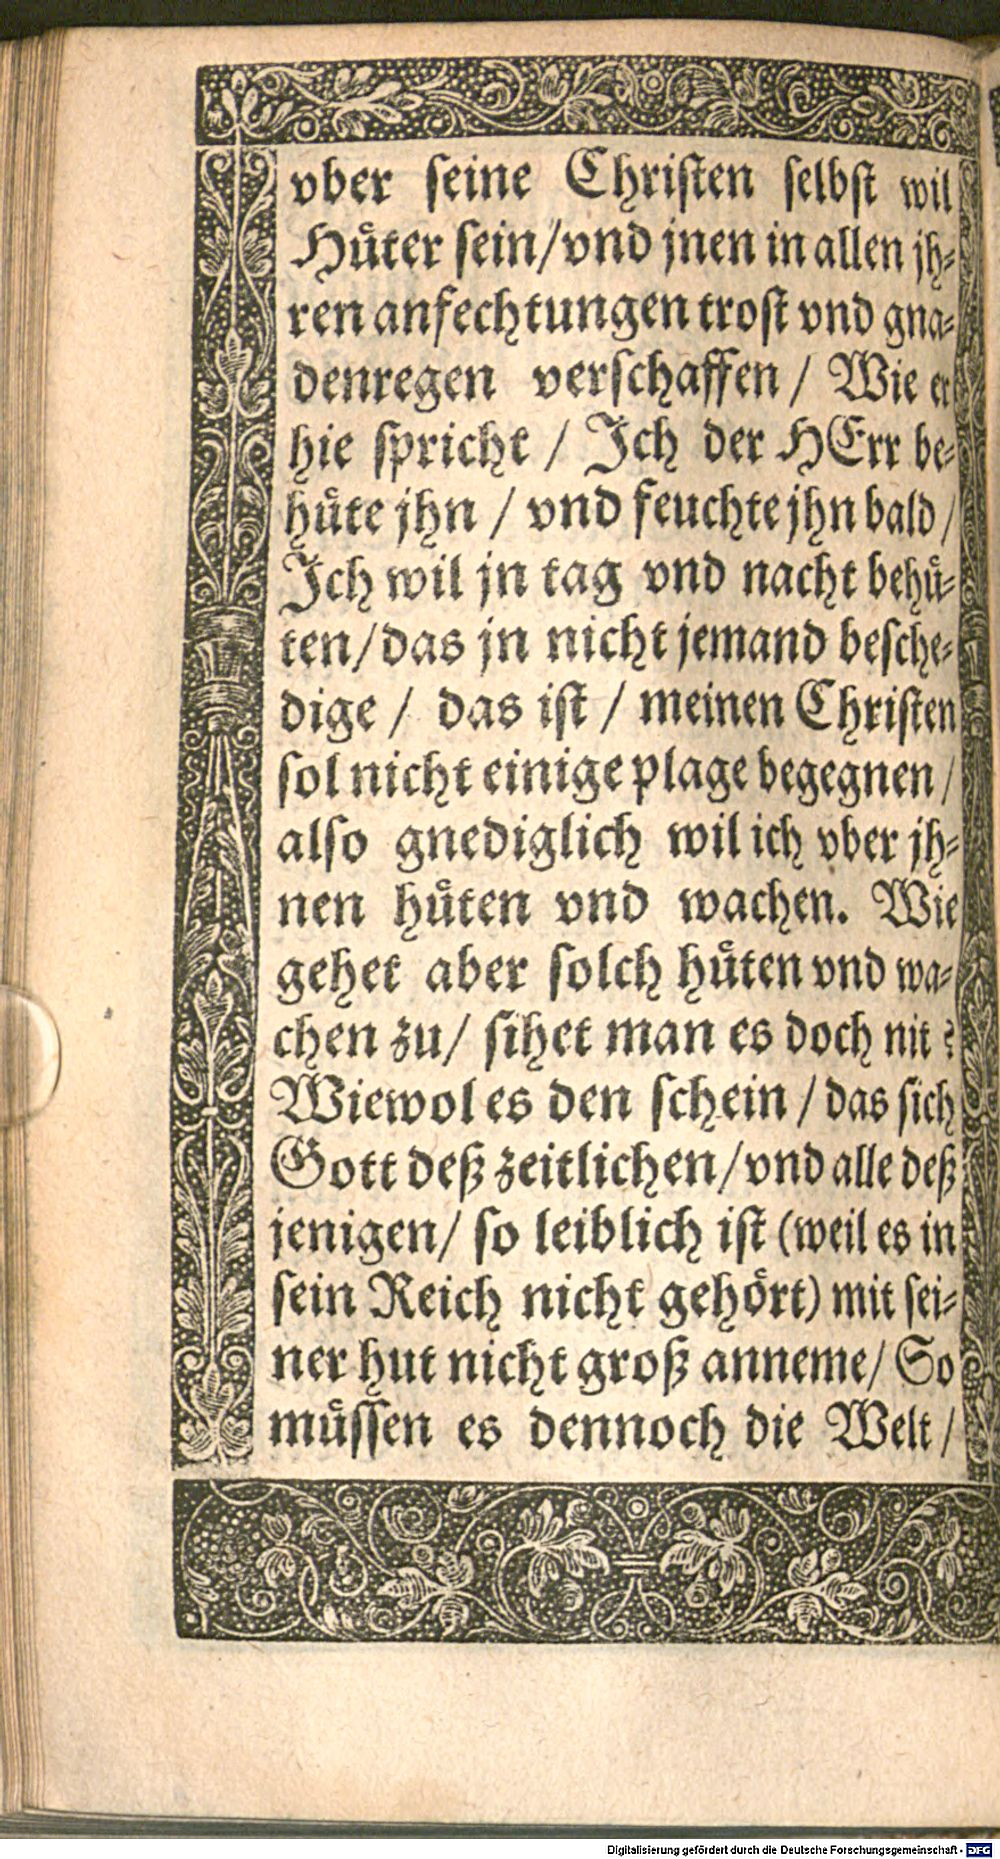 vber ſeine Chriſten ſelbſt wil
Huͤter ſein/vnd jnen in allen jh⸗
ren anfechtungen troſt vnd gna⸗
denregen verſchaffen / Wie er
hie ſpricht / Ich der HErr be⸗
huͤte jhn / vnd feuchte jhn bald /
Ich wil jn tag vnd nacht behuͤ⸗
ten/das jn nicht jemand beſche⸗
dige / das iſt / meinen Chriſten
ſol nicht einige plage begegnen /
alſo gnediglich wil ich vber jh⸗
nen huͤten vnd wachen. Wie
gehet aber ſolch huͤten vnd wa⸗
chen zu/ ſihet man es doch nit ?
Wiewol es den ſchein / das ſich
Gott deß zeitlichen/vnd alle deß
jenigen/ ſo leiblich iſt (weil es in
ſein Reich nicht gehoͤrt) mit ſei⸗
ner hut nicht groß anneme/ So
muͤſſen es dennoch die Welt /
Digitalisierung gefördert durch die Deutsche Forschungsgemeinschaft - DFG